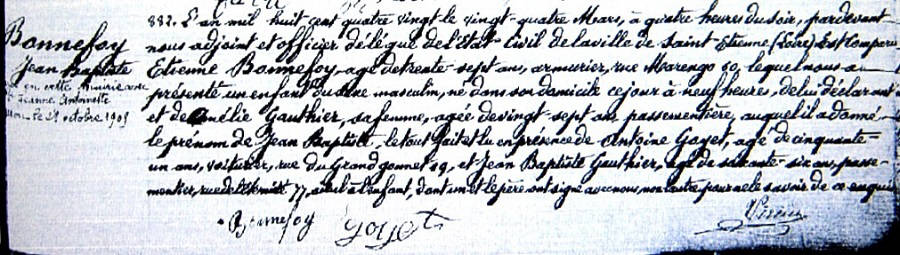 882. L'an mil huit cent quatre vingt le vingt-quatre Mars, à quatre heures du soir, par devant
nous adjoint et officier délégué de l'Etat-Civil de la ville de Saint-Etienne (Loire) Est comparu
Etienne Bonnefoy, agé de trente-sept ans, armurier, rue Marengo 60, lequel nous a
présenté un enfant du sexe masculin, né dans son domicile ce jour à neuf heures, de lui déclarant
et de Amélie Gauthier, sa femme, agée de vingt-sept ans, passementière, auquel il a donné
le prénom de Jean Baptiste, le tout fait et lu en présence de Antoine Goyet, agé de cinquante
un ans, voiturier, rue du Grand gonnet 29, et Jean Baptiste Gauthier, agé de soixante-six ans, passe-
mentier, rue 77, aieul à l'enfant, dont un et le père ont signé avec nous, non l'autre pour ne le savoir de ce enquis
Bonnefoy
Jean Baptiste
en cette mairie avec
Jeanne Antoinette
le 21 octobre 1905
Bonnefoy
Goyet